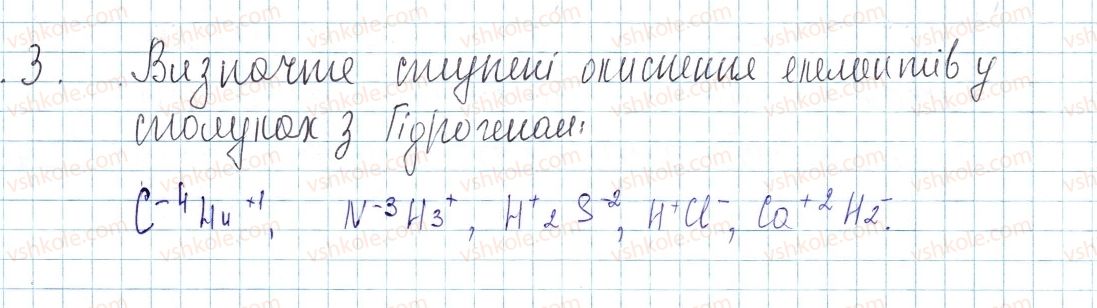 3. Визначте ступені окиснення елементів у
сполуках з Гідрогеном:
C⁻⁴H₄⁺¹, N⁻³H₃⁺, H⁺₂S⁻², H⁺Cl⁻, Ca⁺²H₂⁻.